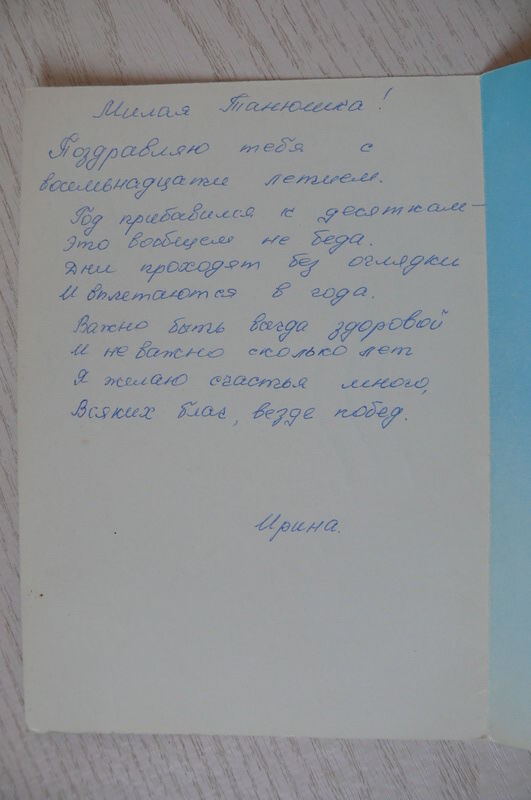 Милая Танюшка!
Поздравляю тебя с
восемьнадцати летием.
Год прибавился к десяткам –
Это вообщем не беда.
Дни проходят без оглядки
И вплетаются в года.
Важно быть всегда здоровой
И не важно сколько лет
Я желаю счастья много,
Всяких благ, везде побед.
Ирина.